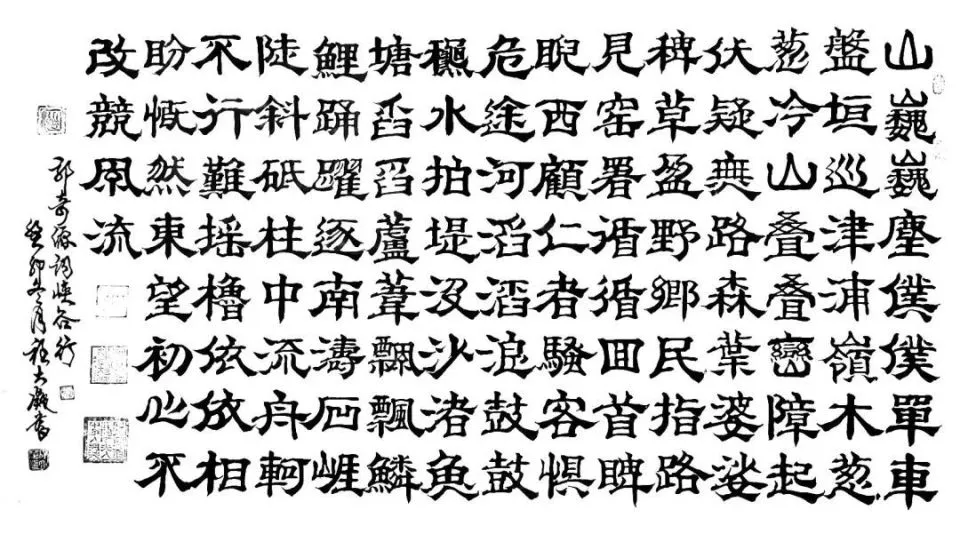 山巍巍塵僕僕單車
盤垣巡津浦嶺木葱
葱冷山叠叠巒障起
伏疑無路森葉婆娑
稗草盈野鄉民指路
見窑署遁循回首睥
睨西顧仁者騷客惧
危途河滔滔浪鼓鼓
穩水拍堤没沙渚魚
塘舀舀蘆葦飄飄鱗
鯉踊躍逐南濤厄崕
陡斜砥柱中流舟軻
不行難摇櫓依依相
盼慨然東望初心不
改競風流
郭奇源詞峽谷行
癸卯冬月程大凝書